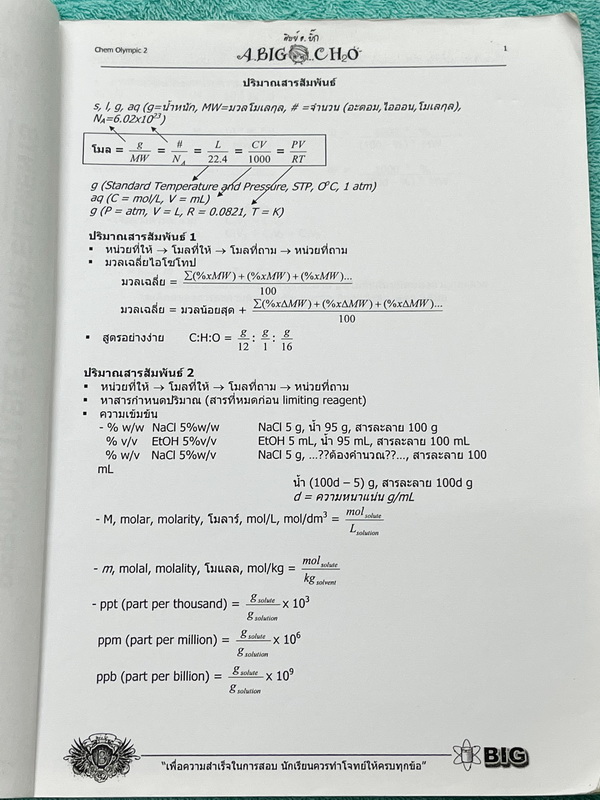 Chem Olympic 2
ศิษย์ อ. บิ๊ก
A BIG CH₂O
1
ปริมาณสารสัมพันธ์
s, l, g, aq (g=น้ำหนัก, MW=มวลโมเลกุล, # =จำนวน (อะตอม,ไอออน,โมเลกุล),
N_A=6.02x10²³)
โมล = g/MW = #/N_A = L/22.4 = CV/1000 = PV/RT
g (Standard Temperature and Pressure, STP, 0°C, 1 atm)
aq (C = mol/L, V = mL)
g (P = atm, V = L, R = 0.0821, T = K)
ปริมาณสารสัมพันธ์ 1
▪ หน่วยที่ให้ → โมลที่ให้ → โมลที่ถาม → หน่วยที่ถาม
▪ มวลเฉลี่ยไอโซโทป
มวลเฉลี่ย = ∑(%xMW)+(%xMW)+(%xMW).../100
มวลเฉลี่ย = มวลน้อยสุด + ∑(%xΔMW)+(%xΔMW)+(%xΔMW).../100
▪ สูตรอย่างง่าย C:H:O = g/12 : g/1 : g/16
ปริมาณสารสัมพันธ์ 2
▪ หน่วยที่ให้ → โมลที่ให้ → โมลที่ถาม → หน่วยที่ถาม
▪ หาสารกำหนดปริมาณ (สารที่หมดก่อน limiting reagent)
▪ ความเข้มข้น
- % w/w NaCl 5%w/w NaCl 5 g, น้ำ 95 g, สารละลาย 100 g
% v/v EtOH 5%v/v EtOH 5 mL, น้ำ 95 mL, สารละลาย 100 mL
% w/v NaCl 5%w/v NaCl 5 g, ...??ต้องคำนวณ??..., สารละลาย 100
mL
น้ำ (100d – 5) g, สารละลาย 100d g
d = ความหนาแน่น g/mL
- M, molar, molarity, โมลาร์, mol/L, mol/dm³ = mol solute/L solution
- m, molal, molality, โมแลล, mol/kg = mol solute/kg solvent
- ppt (part per thousand) = g solute/g solution x 10³
ppm (part per million) = g solute/g solution x 10⁶
ppb (part per billion) = g solute/g solution x 10⁹
"เพื่อความสำเร็จในการสอบ นักเรียนควรทำโจทย์ให้ครบทุกข้อ"
BIG